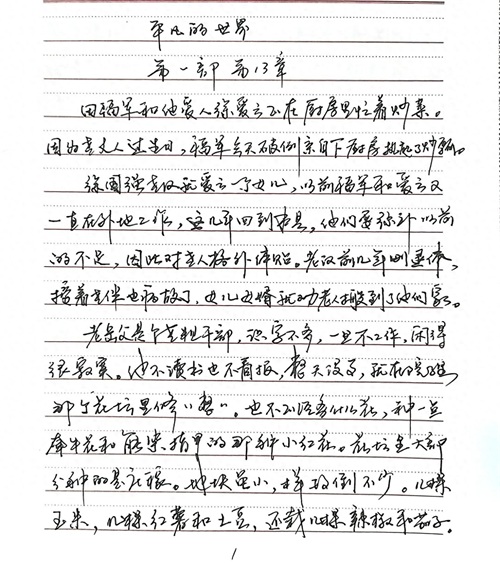 平凡的世界
第一部 第13章
田福军和他爱人徐爱云正在厨房里忙着炒菜。
因为老丈人过生日，福军今天破例亲自下厨房执起了炒瓢。
徐国强老汉就爱云一个女儿，以前福军和爱云又
一直在外地工作，这几年回到原县，他们要弥补以前
的不足，因此对老人格外体贴。老汉前几年刚退休，
接着老伴也病故了，女儿女婿就劝老人搬到了他们家。
老岳父是个老粗干部，识字不多，一旦不工作，闲得
很寂寞。他不读书也不看报，整天没事，就在院
那个花坛里修"整"。也不务什么花，种一点
牵牛花和能染指甲的那种小红花。花坛里大部
分种的是庄稼。地块虽小，样数倒不少。几棵
玉米，几棵红薯和土豆，还栽几棵辣椒和茄子。
1